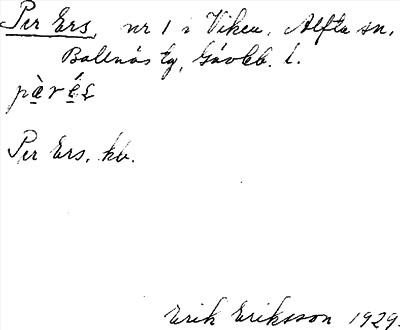 Per Ers, nr 1 i Viken, Alfta sn,
Bollnäs tg, Gävleb. l.
pàrę́s
Per Ers, kb.
Erik Eriksson 1929.